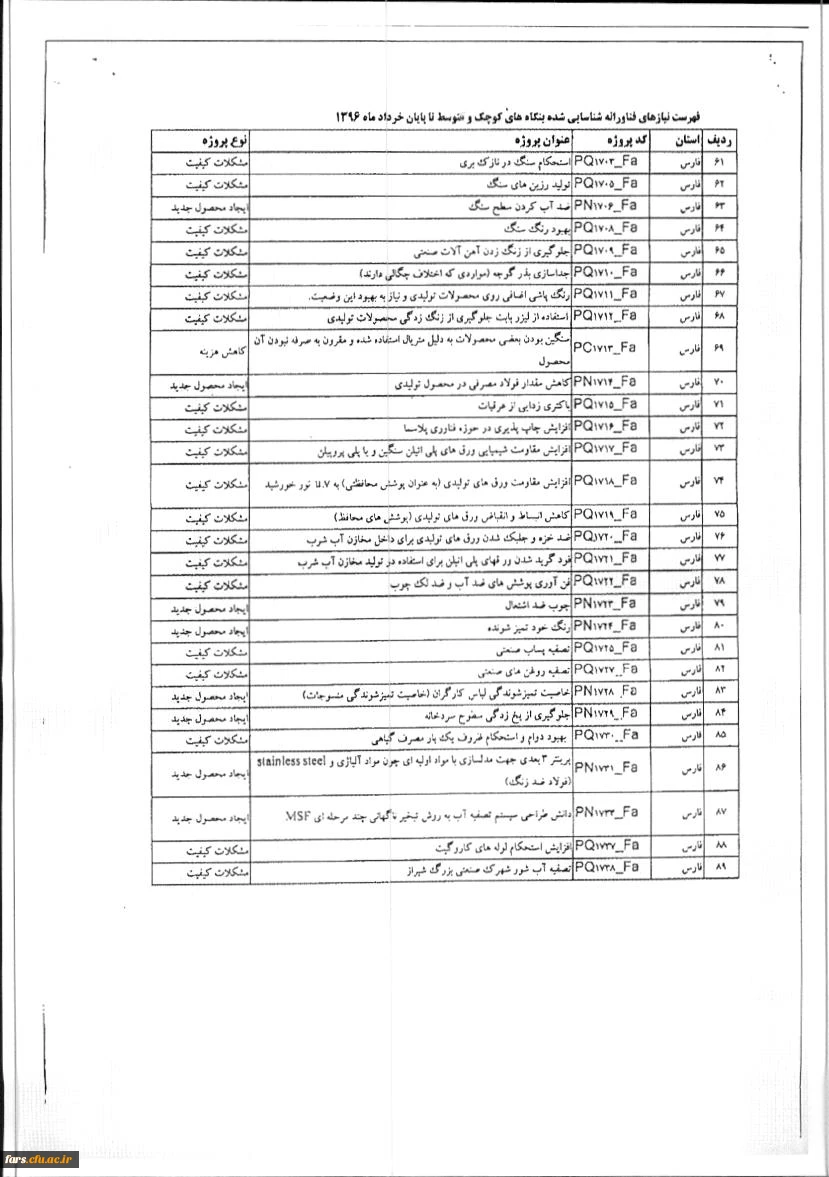 فهرست نیازهای فناورانه شناسایی شده بنگاه های کوچک و متوسط تا پایان خرداد ماه ۱۳۹۶
ردیف استان کد پروژه عنوان پروژه نوع پروژه
۶۱ فارس PQ۱۷۰۳_Fa استحکام سنگ در نازک بری مشکلات کیفیت
۶۲ فارس PQ۱۷۰۵_Fa تولید رزین های سنگ مشکلات کیفیت
۶۳ فارس PN۱۷۰۶_Fa ضد آب کردن سطح سنگ ایجاد محصول جدید
۶۴ فارس PQ۱۷۰۸_Fa بهبود رنگ سنگ مشکلات کیفیت
۶۵ فارس PQ۱۷۰۹_Fa جلوگیری از زنگ زدن آهن آلات صنعتی مشکلات کیفیت
۶۶ فارس PQ۱۷۱۰_Fa جداسازی بذر گوجه (مواردی که اختلاف چگالی دارند) مشکلات کیفیت
۶۷ فارس PQ۱۷۱۱_Fa رنگ پاشی اضافی روی محصولات تولیدی و نیاز به بهبود این وضعیت. مشکلات کیفیت
۶۸ فارس PQ۱۷۱۲_Fa استفاده از لیزر بابت جلوگیری از زنگ زدگی محصولات تولیدی مشکلات کیفیت
۶۹ فارس PC۱۷۱۳_Fa سنگین بودن بعضی محصولات به دلیل متریال استفاده شده و مقرون به صرفه نبودن آن کاهش هزینه
محصول
۷۰ فارس PN۱۷۱۴_Fa کاهش مقدار فولاد مصرفی در محصول تولیدی ایجاد محصول جدید
۷۱ فارس PQ۱۷۱۵_Fa باکتری زدایی از عرقیات مشکلات کیفیت
۷۲ فارس PQ۱۷۱۶_Fa افزایش چاپ پذیری در حوزه فناوری پلاسما مشکلات کیفیت
۷۳ فارس PQ۱۷۱۷_Fa افزایش مقاومت شیمیایی ورق های پلی اتیلن سنگین و یا پلی پروپیلن مشکلات کیفیت
۷۴ فارس PQ۱۷۱۸_Fa افزایش مقاومت ورق های تولیدی (به عنوان پوشش محافظتی) به u.v نور خورشید مشکلات کیفیت
۷۵ فارس PQ۱۷۱۹_Fa کاهش انبساط و انقباض ورق های تولیدی (پوشش های محافظ) مشکلات کیفیت
۷۶ فارس PQ۱۷۲۰_Fa ضد خزه و جلبک شدن ورق های تولیدی برای داخل مخازن آب شرب مشکلات کیفیت
۷۷ فارس PQ۱۷۲۱_Fa فود گرید شدن ور قهای پلی اتیلن برای استفاده در تولید مخازن آب شرب مشکلات کیفیت
۷۸ فارس PQ۱۷۲۲_Fa فن آوری پوشش های ضد آب و ضد لک چوب مشکلات کیفیت
۷۹ فارس PN۱۷۲۳_Fa چوب ضد اشتعال ایجاد محصول جدید
۸۰ فارس PN۱۷۲۴_Fa رنگ خود تمیز شونده ایجاد محصول جدید
۸۱ فارس PQ۱۷۲۵_Fa تصفیه پساب صنعتی مشکلات کیفیت
۸۲ فارس PQ۱۷۲۷_Fa تصفیه روغن های صنعتی مشکلات کیفیت
۸۳ فارس PN۱۷۲۸_Fa خاصیت تمیزشوندگی لباس کارگران (خاصیت تمیزشوندگی منسوجات) ایجاد محصول جدید
۸۴ فارس PN۱۷۲۹_Fa جلوگیری از یخ زدگی سطوح سردخانه ایجاد محصول جدید
۸۵ فارس PQ۱۷۳۰_Fa بهبود دوام و استحکام ظروف یک بار مصرف گیاهی مشکلات کیفیت
۸۶ فارس PN۱۷۳۱_Fa پرینتر ۳ بعدی جهت مدلسازی با مواد اولیه ای چون مواد آلیاژی و stainless steel ایجاد محصول جدید
(فولاد ضد زنگ)
۸۷ فارس PN۱۷۳۳_Fa دانش طراحی سیستم تصفیه آب به روش تبخیر ناگهانی چند مرحله ای MSF ایجاد محصول جدید
۸۸ فارس PQ۱۷۳۷_Fa افزایش استحکام لوله های کاروگیت مشکلات کیفیت
۸۹ فارس PQ۱۷۳۸_Fa تصفیه آب شور شهرک صنعتی بزرگ شیراز مشکلات کیفیت
fars.cfu.ac.ir